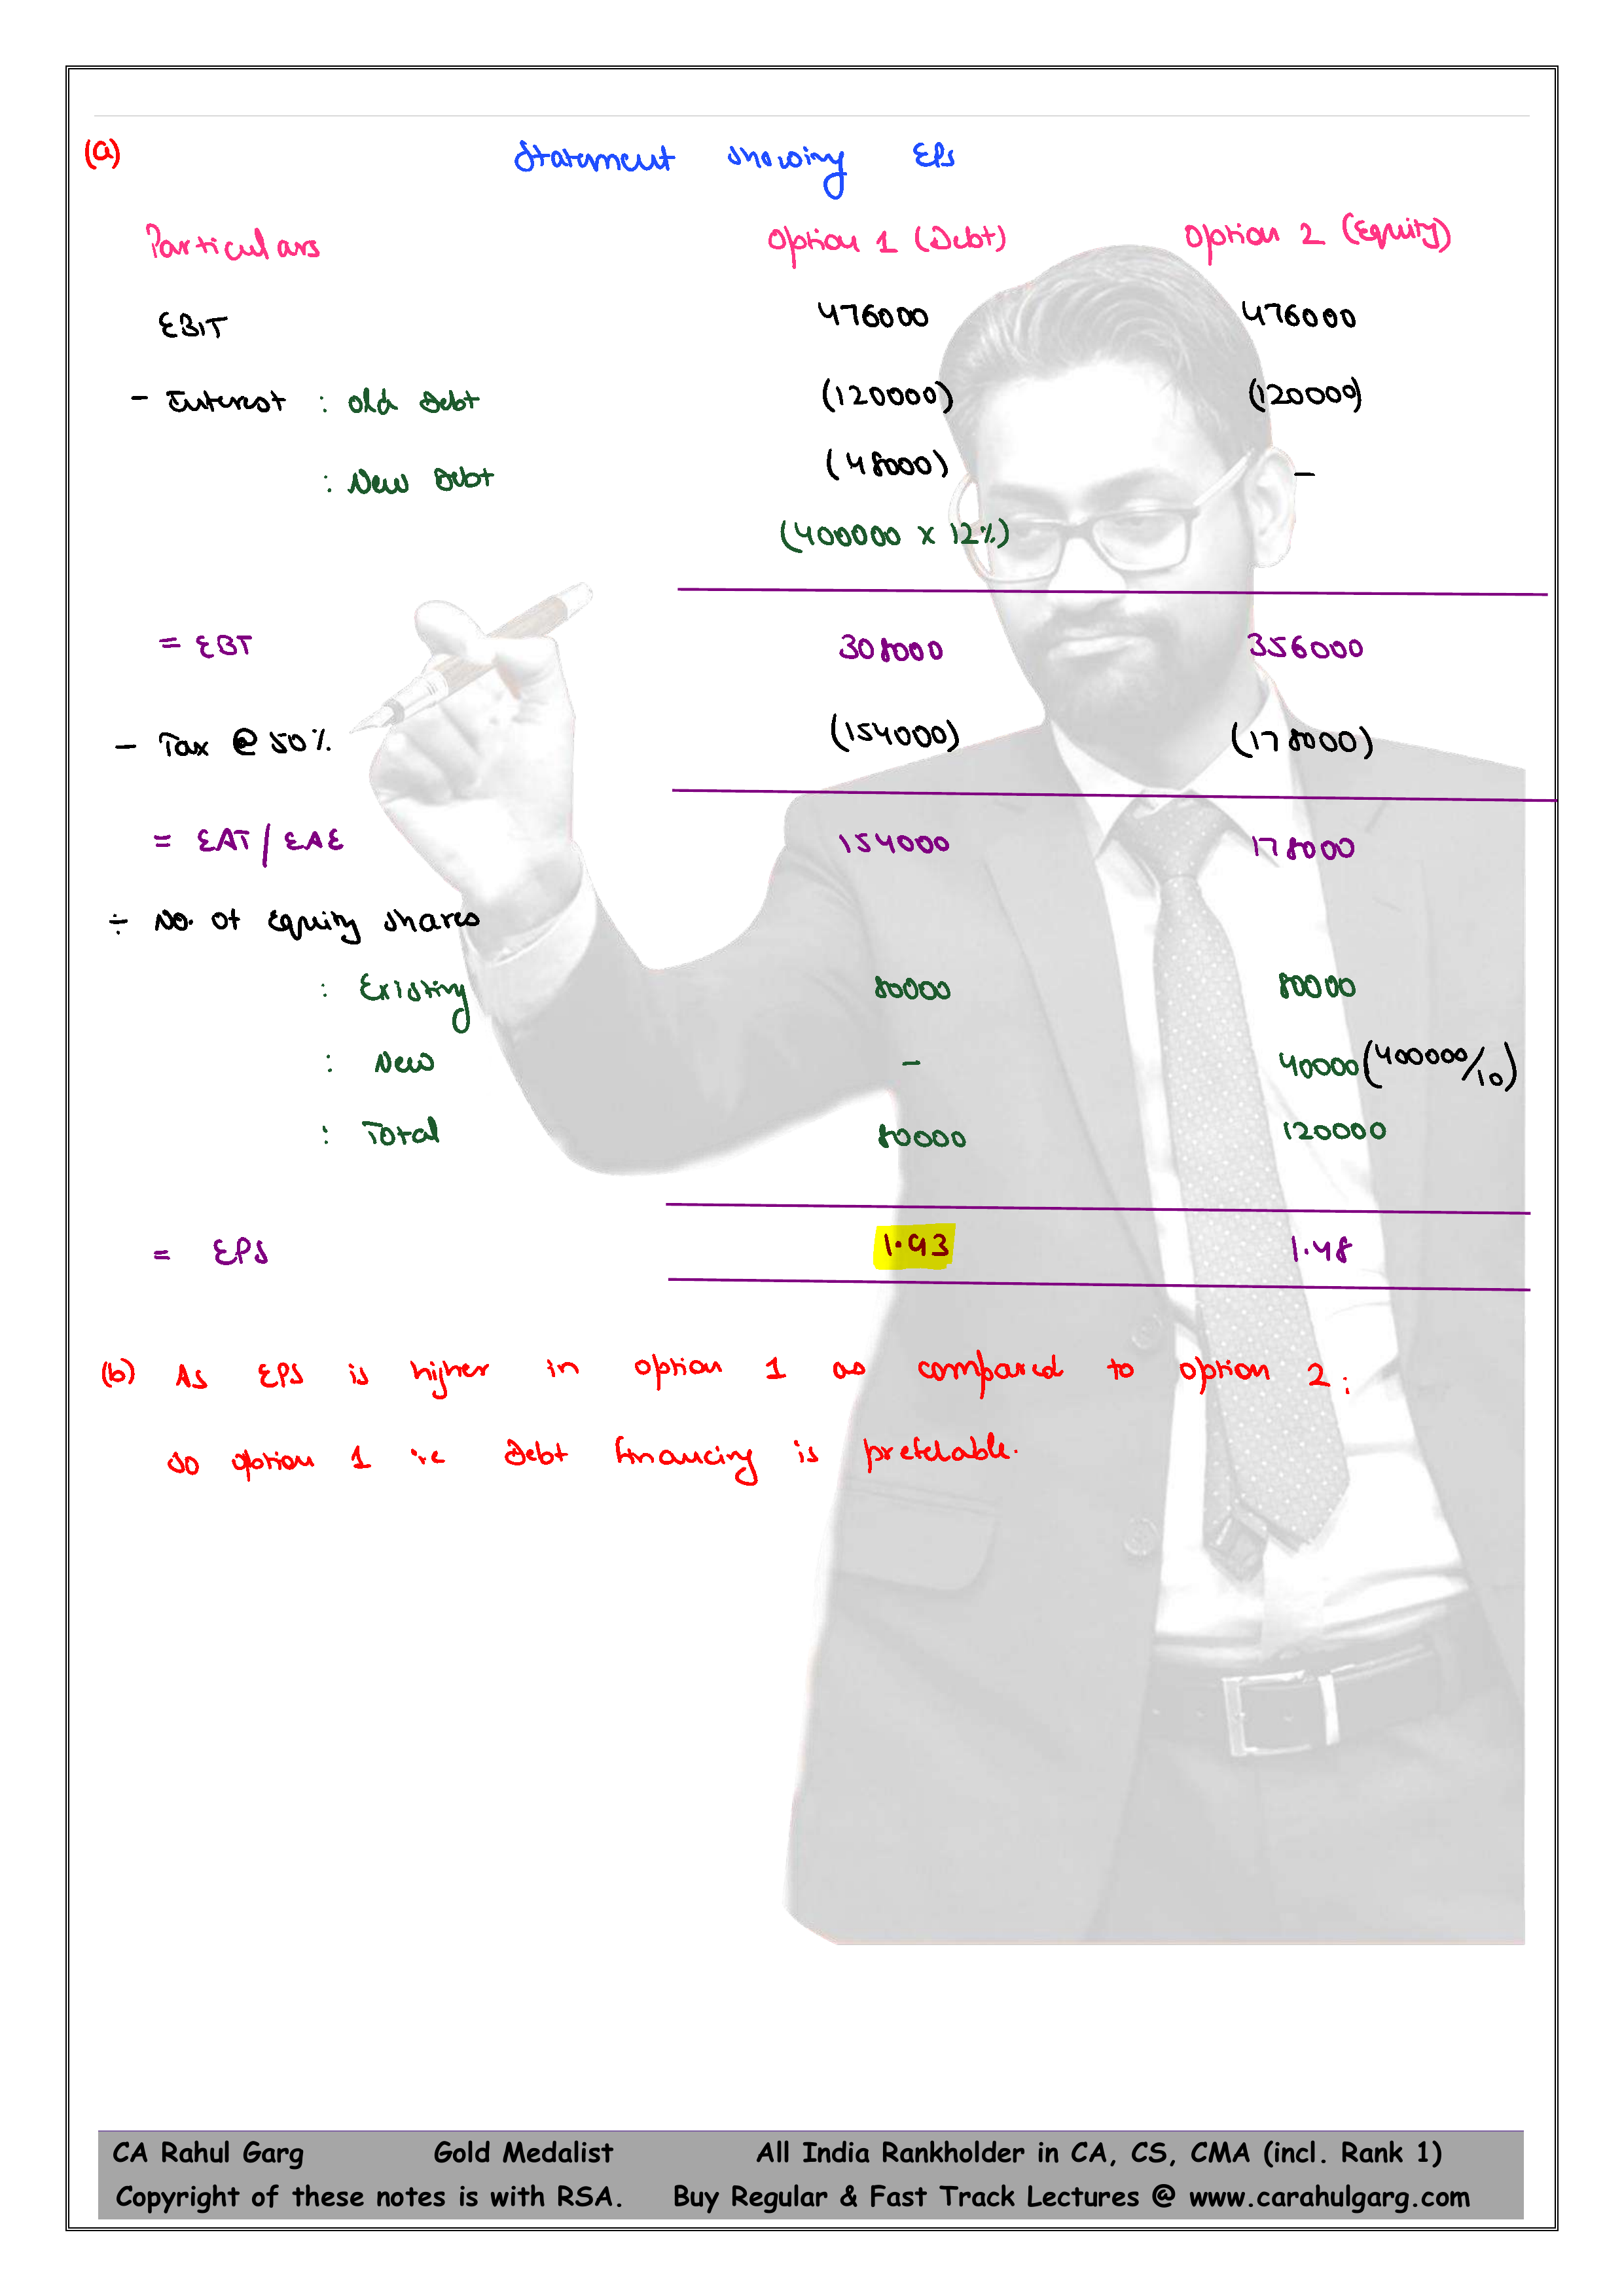 (a) Statement showing EPS
Particulars Option 1 (Debt) Option 2 (Equity)
EBIT 476000 476000
- Interest : Old Debt (120000) (120000)
: New Debt (48000) -
(400000 x 12%)
= EBT 308000 356000
- Tax @ 50% (154000) (178000)
= EAT / EAE 154000 178000
÷ No. of Equity shares
: Existing 80000 80000
: New - 40000 (400000/10)
: Total 80000 120000
= EPS 1.93 1.48
(b) As EPS is higher in option 1 as compared to option 2;
so option 1 ie Debt financing is preferable.
CA Rahul Garg Gold Medalist All India Rankholder in CA, CS, CMA (incl. Rank 1)
Copyright of these notes is with RSA. Buy Regular & Fast Track Lectures @ www.carahulgarg.com